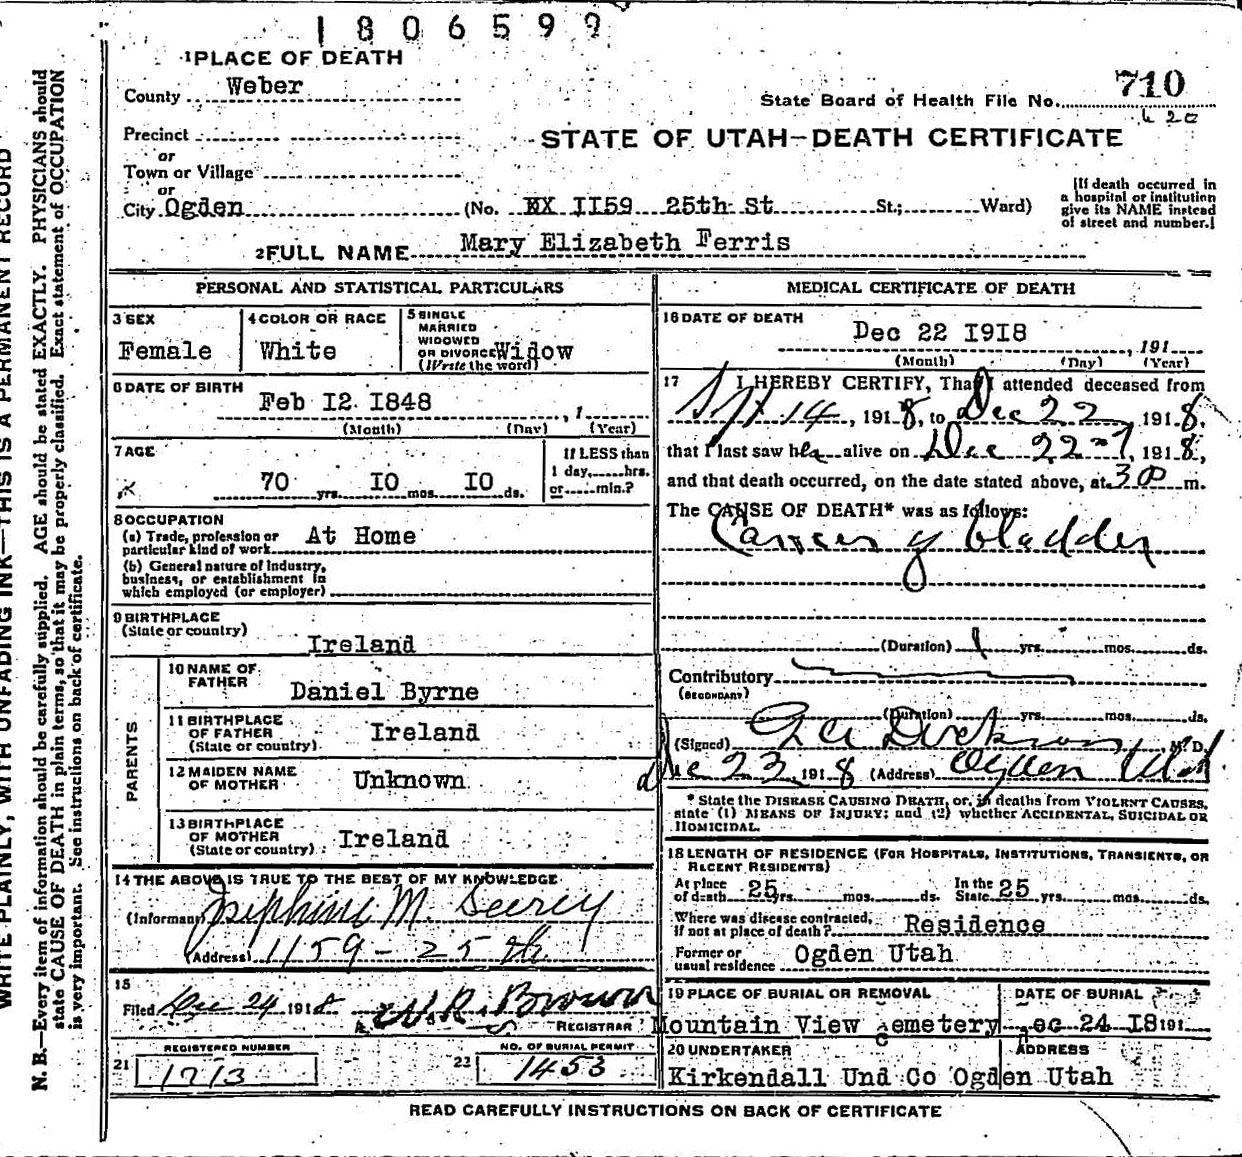 1806599
1 PLACE OF DEATH
County Weber
710
State Board of Health File No.
620
Precinct
STATE OF UTAH—DEATH CERTIFICATE
or
Town or Village
or
City Ogden (No. XX II59 25th St St.; Ward)
[If death occurred in
a hospital or institution
give its NAME instead
of street and number.]
2 FULL NAME Mary Elizabeth Ferris
PERSONAL AND STATISTICAL PARTICULARS
3 SEX
Female
4 COLOR OR RACE
White
5 SINGLE
MARRIED
WIDOWED
OR DIVORCED Widow
(Write the word)
6 DATE OF BIRTH
Feb I2 I848 , 1
(Month) (Day) (Year)
7 AGE
70 yrs. IO mos. IO ds.
If LESS than
1 day, hrs.
or min.?
8 OCCUPATION
(a) Trade, profession or
particular kind of work At Home
(b) General nature of industry,
business, or establishment in
which employed (or employer)
9 BIRTHPLACE
(State or country)
Ireland
PARENTS
10 NAME OF
FATHER
Daniel Byrne
11 BIRTHPLACE
OF FATHER
(State or country)
Ireland
12 MAIDEN NAME
OF MOTHER
Unknown
13 BIRTHPLACE
OF MOTHER
(State or country)
Ireland
14 THE ABOVE IS TRUE TO THE BEST OF MY KNOWLEDGE
(Informant) Josephine M. Seerey
(Address) 1159-25th
15
Filed Dec 24 1918 W.R. Brown
REGISTRAR
REGISTERED NUMBER
21 1713
NO. OF BURIAL PERMIT
22 1453
MEDICAL CERTIFICATE OF DEATH
16 DATE OF DEATH
Dec 22 I9I8 , 191
(Month) (Day) (Year)
17 I HEREBY CERTIFY, That I attended deceased from
Sept 14, 1918, to Dec 22 1918,
that I last saw her alive on Dec 22nd, 1918,
and that death occurred, on the date stated above, at 3 P m.
The CAUSE OF DEATH* was as follows:
Cancer of bladder
(Duration) 1 yrs. mos. ds.
Contributory
(SECONDARY)
(Duration) yrs. mos. ds.
(Signed) Dickson M.D.
Dec 23, 1918 (Address) Ogden Utah
* State the DISEASE CAUSING DEATH, or, in deaths from VIOLENT CAUSES,
state (1) MEANS OF INJURY; and (2) whether ACCIDENTAL, SUICIDAL OR
HOMICIDAL.
18 LENGTH OF RESIDENCE (FOR HOSPITALS, INSTITUTIONS, TRANSIENTS, OR
RECENT RESIDENTS)
At place
of death 25 yrs. mos. ds. In the
State 25 yrs. mos. ds.
Where was disease contracted,
if not at place of death? Residence
Former or
usual residence Ogden Utah
19 PLACE OF BURIAL OR REMOVAL
Mountain View Cemetery
DATE OF BURIAL
Dec 24 I8 191
20 UNDERTAKER ADDRESS
Kirkendall Und Co Ogden Utah
READ CAREFULLY INSTRUCTIONS ON BACK OF CERTIFICATE
WRITE PLAINLY, WITH UNFADING INK—THIS IS A PERMANENT RECORD
N. B.—Every item of information should be carefully supplied. AGE should be stated EXACTLY. PHYSICIANS should
state CAUSE OF DEATH in plain terms, so that it may be properly classified. Exact statement of OCCUPATION
is very important. See instructions on back of certificate.